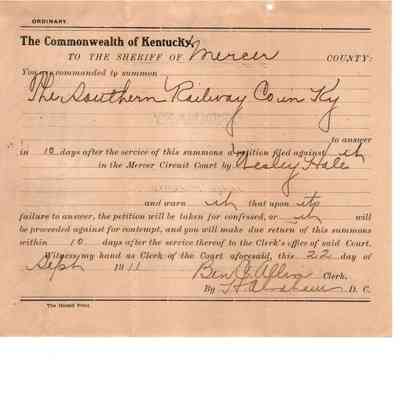 ORDINARY.
The Commonwealth of Kentucky,
TO THE SHERIFF OF Mercer COUNTY:
You are commanded to summon
The Southern Railway Co in Ky
to answer
in 10 days after the service of this summons a petition filed against it
in the Mercer Circuit Court by Lesley Hale
and warn it that upon its
failure to answer, the petition will be taken for confessed, or it will
be proceeded against for contempt, and you will make due return of this summons
within 10 days after the service thereof to the Clerk's office of said Court.
Witness my hand as Clerk of the Court aforesaid, this 22 day of
Sept 1911
Ben C Allin Clerk.
By D. C.
The Herald Print.